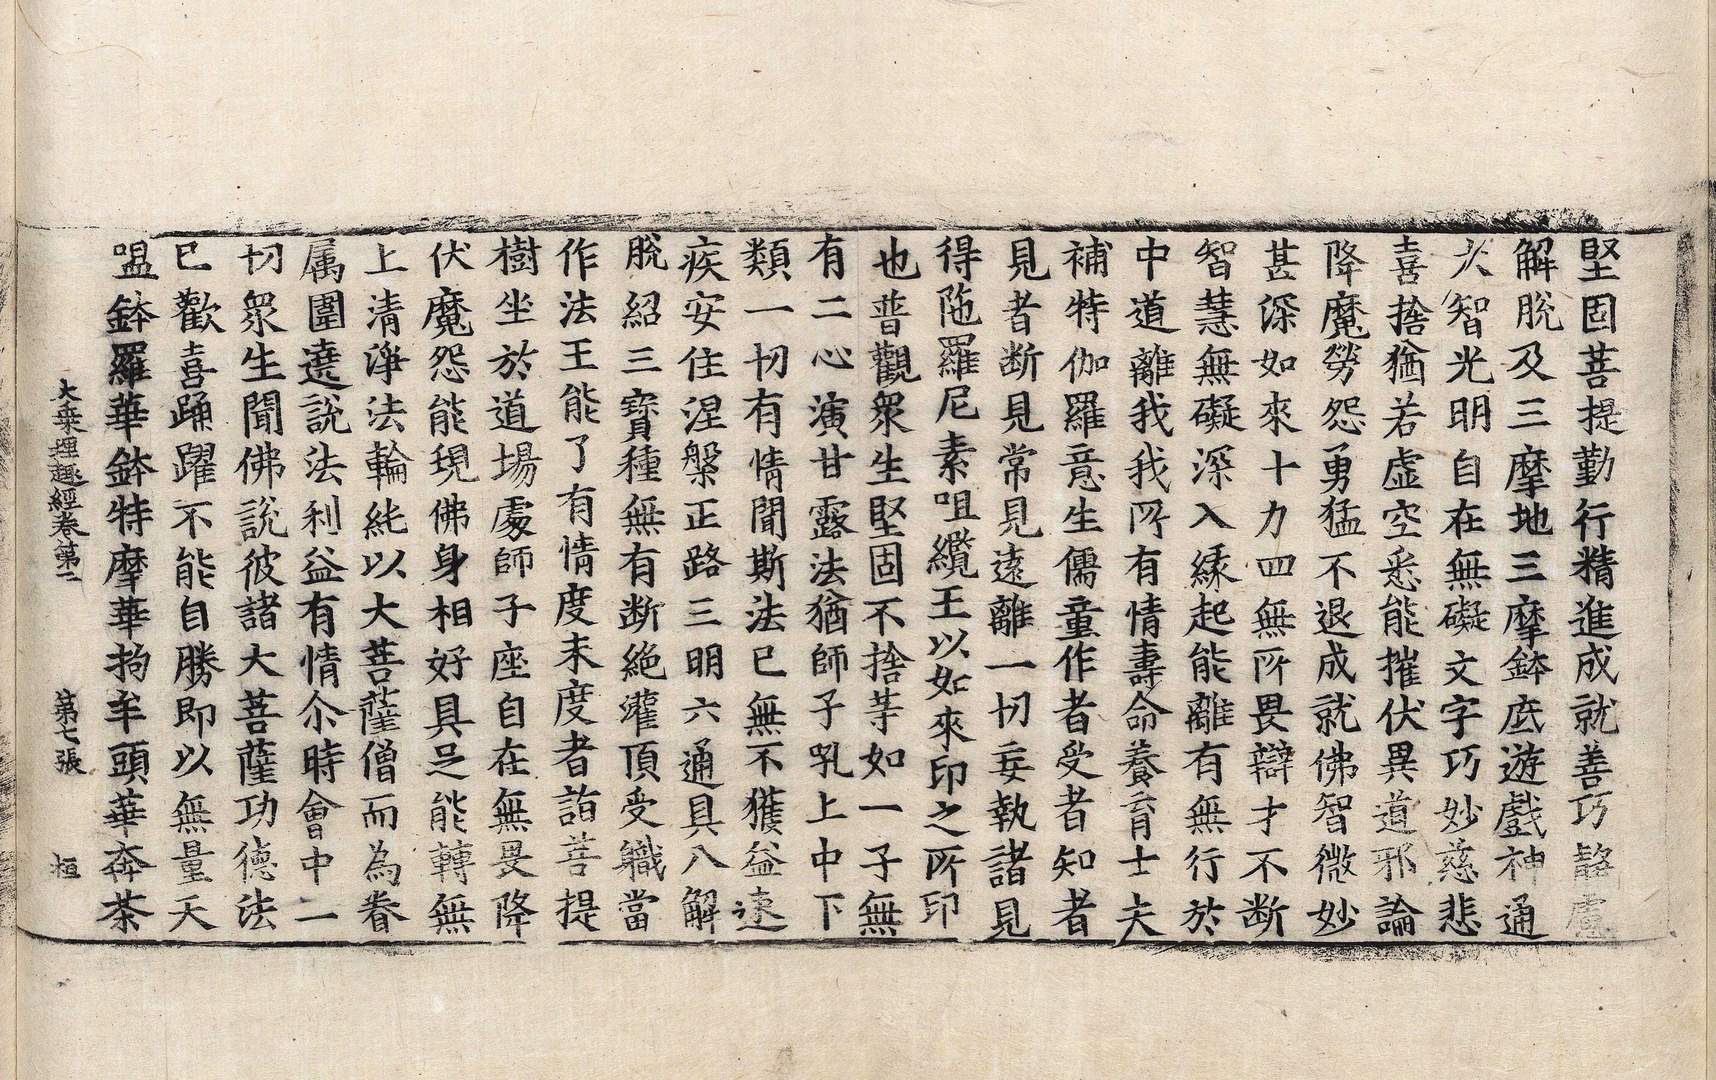 堅固菩提勤行精進成就善巧靜慮
解脫及三摩地三摩鉢底遊戲神通
大智光明自在無礙文字巧妙慈悲
喜捨猶若虛空悉能摧伏異道邪論
降魔勞怨勇猛不退成就佛智微妙
甚深如來十力四無所畏辯才不断
智慧無礙深入緣起能離有無行於
中道離我我所有情壽命養育士夫
補特伽羅意生儒童作者受者知者
見者断見常見遠離一切妄執諸見
得陁羅尼素咀纜王以如來印之所印
也普觀衆生堅固不捨等如一子無
有二心演甘露法猶師子乳上中下
類一切有情聞斯法已無不獲益速
疾安住涅槃正路三明六通具八解
脫紹三寶種無有断絶灌頂受職當
作法王能了有情度未度者詣菩提
樹坐於道場處師子座自在無畏降
伏魔怨能現佛身相好具足能轉無
上清淨法輪純以大菩薩僧而為眷
属圍遶說法利益有情尒時會中一
切衆生聞佛說彼諸大菩薩功德法
已歡喜踊躍不能自勝即以無量天
嗢鉢羅華鉢特摩華拘牟頭華奔茶
大乘理趣經卷第二 第七張 桓